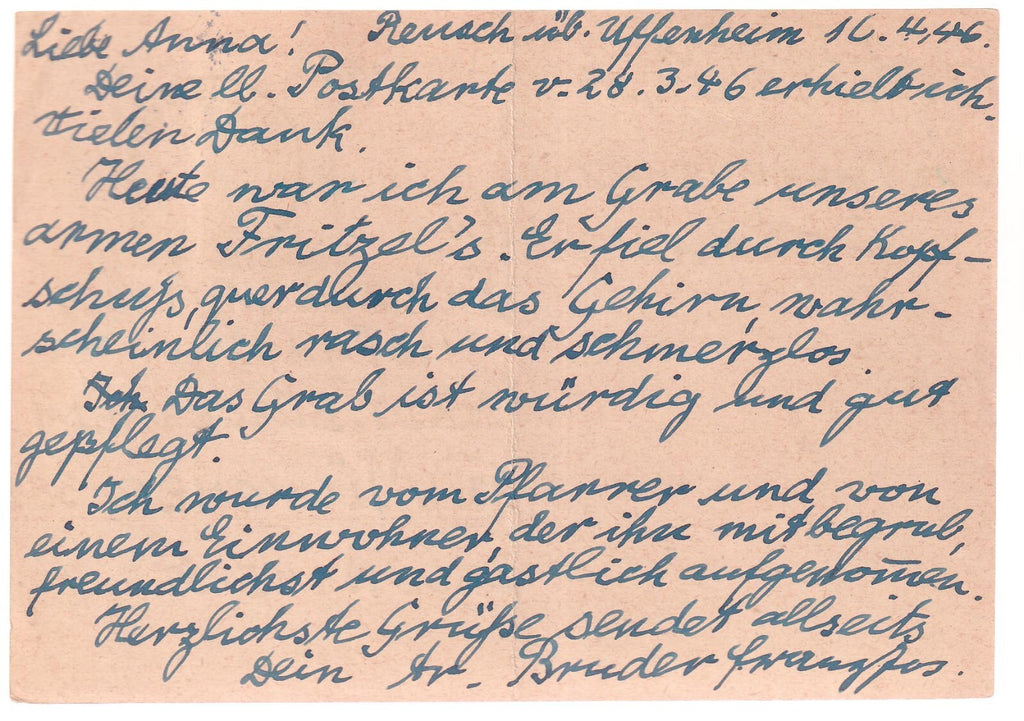 Liebe Anna! Reusch üb. Uffenheim 16. 4. 46.
Deine lb. Postkarte v. 28. 3. 46 erhielt ich.
Vielen Dank.
Heute war ich am Grabe unseres
armen Fritzel's. Er fiel durch Kopf-
schuß, quer durch das Gehirn, wahr-
scheinlich rasch und schmerzlos
Das Grab ist würdig und gut
gepflegt.
Ich wurde vom Pfarrer und von
einem Einwohner, der ihn mitbegrub,
freundlichst und gastlich aufgenom̅en.
Herzlichste Grüße sendet allseits
Dein tr. Bruder